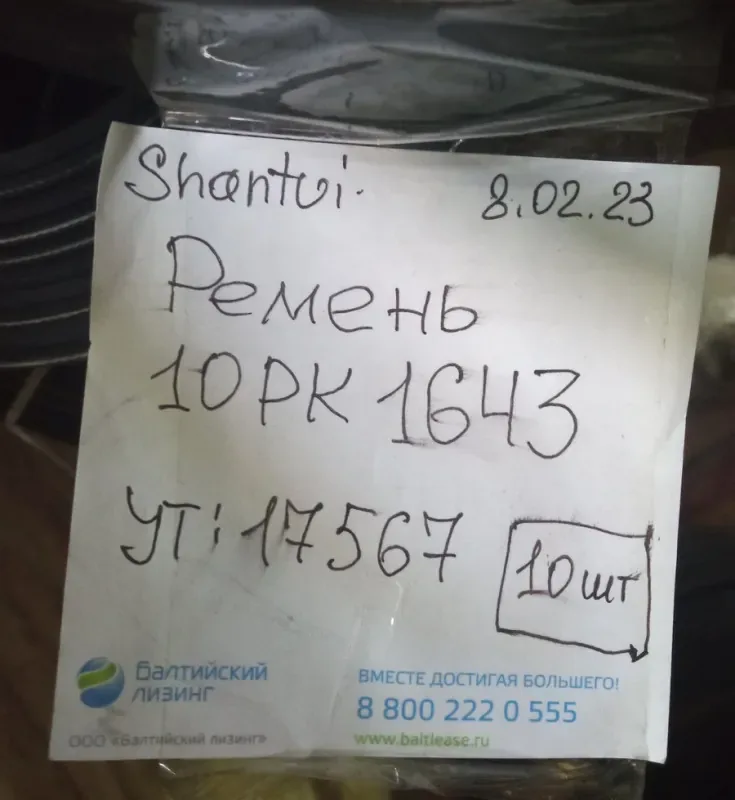 Shantui. 8.02.23
Ремень
10РК 1643
УТ: 17567
10 шт
Балтийский
лизинг
ООО «Балтийский лизинг»
ВМЕСТЕ ДОСТИГАЯ БОЛЬШЕГО!
8 800 222 0 555
www.baltlease.ru